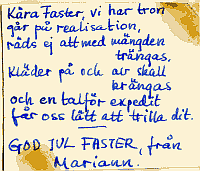 Kära Faster, vi har tron
går på realisation,
räds ej att med mängden
trängas.
Kläder på och av skall
krängas
och en talför expedit
får oss lätt att trilla dit.
GOD JUL FASTER, från
Mariann.